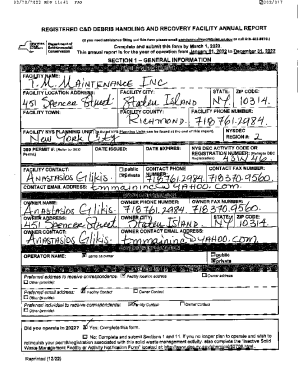 REGISTERED C&D DEBRIS HANDLING AND RECOVERY FACILITY ANNUAL REPORT
Department of Environmental Conservation
Complete and submit this form by March 1, 2023
This annual report is for the year of operation from January 01, 2022 to December 31, 2022
SECTION 1 – GENERAL INFORMATION
FACILITY NAME:
T.M. MAINTENANCE INC
FACILITY LOCATION ADDRESS: FACILITY CITY: STATE: ZIP CODE:
451 Spencer Street Staten Island NY 10314
FACILITY TOWN: FACILITY COUNTY: FACILITY PHONE NUMBER:
Richmond 718 761.2984
FACILITY NYS PLANNING UNIT: NYSDEC REGION #:
New York City 2
DATE ISSUED: DATE EXPIRES: NYS DEC ACTIVITY CODE OR REGISTRATION NUMBER:
FACILITY CONTACT: public private CONTACT PHONE NUMBER: CONTACT FAX NUMBER:
Anastasios Glikis 718 761.2984 718 370.9560
CONTACT EMAIL ADDRESS: tmmaininc@YAHOO.COM
OWNER NAME: OWNER PHONE NUMBER: OWNER FAX NUMBER:
Anastasios Glikis 718 761.2984 718 370.9560
OWNER ADDRESS: OWNER CITY: STATE: ZIP CODE:
451 Spencer Street Staten Island NY 10314
OWNER CONTACT: OWNER CONTACT EMAIL ADDRESS:
Anastasios Glikis tmmaininc@YAHOO.COM
OPERATOR NAME: same as owner public private
Preferred address to receive correspondence: Facility location address Owner address
Other (provide):
Preferred email address: Facility Contact Owner Contact
Other (provide):
Preferred individual to receive correspondence: Facility Contact Owner Contact
Other (provide):
Did you operate in 2022? Yes; Complete this form.
No; Complete and submit Sections 1 and 11. If you no longer plan to operate and wish to
relinquish your permit/registration associated with this solid waste management activity, also complete the "Inactive Solid
Waste Management Facility or Activity Notification Form"
Reprinted (12/22)